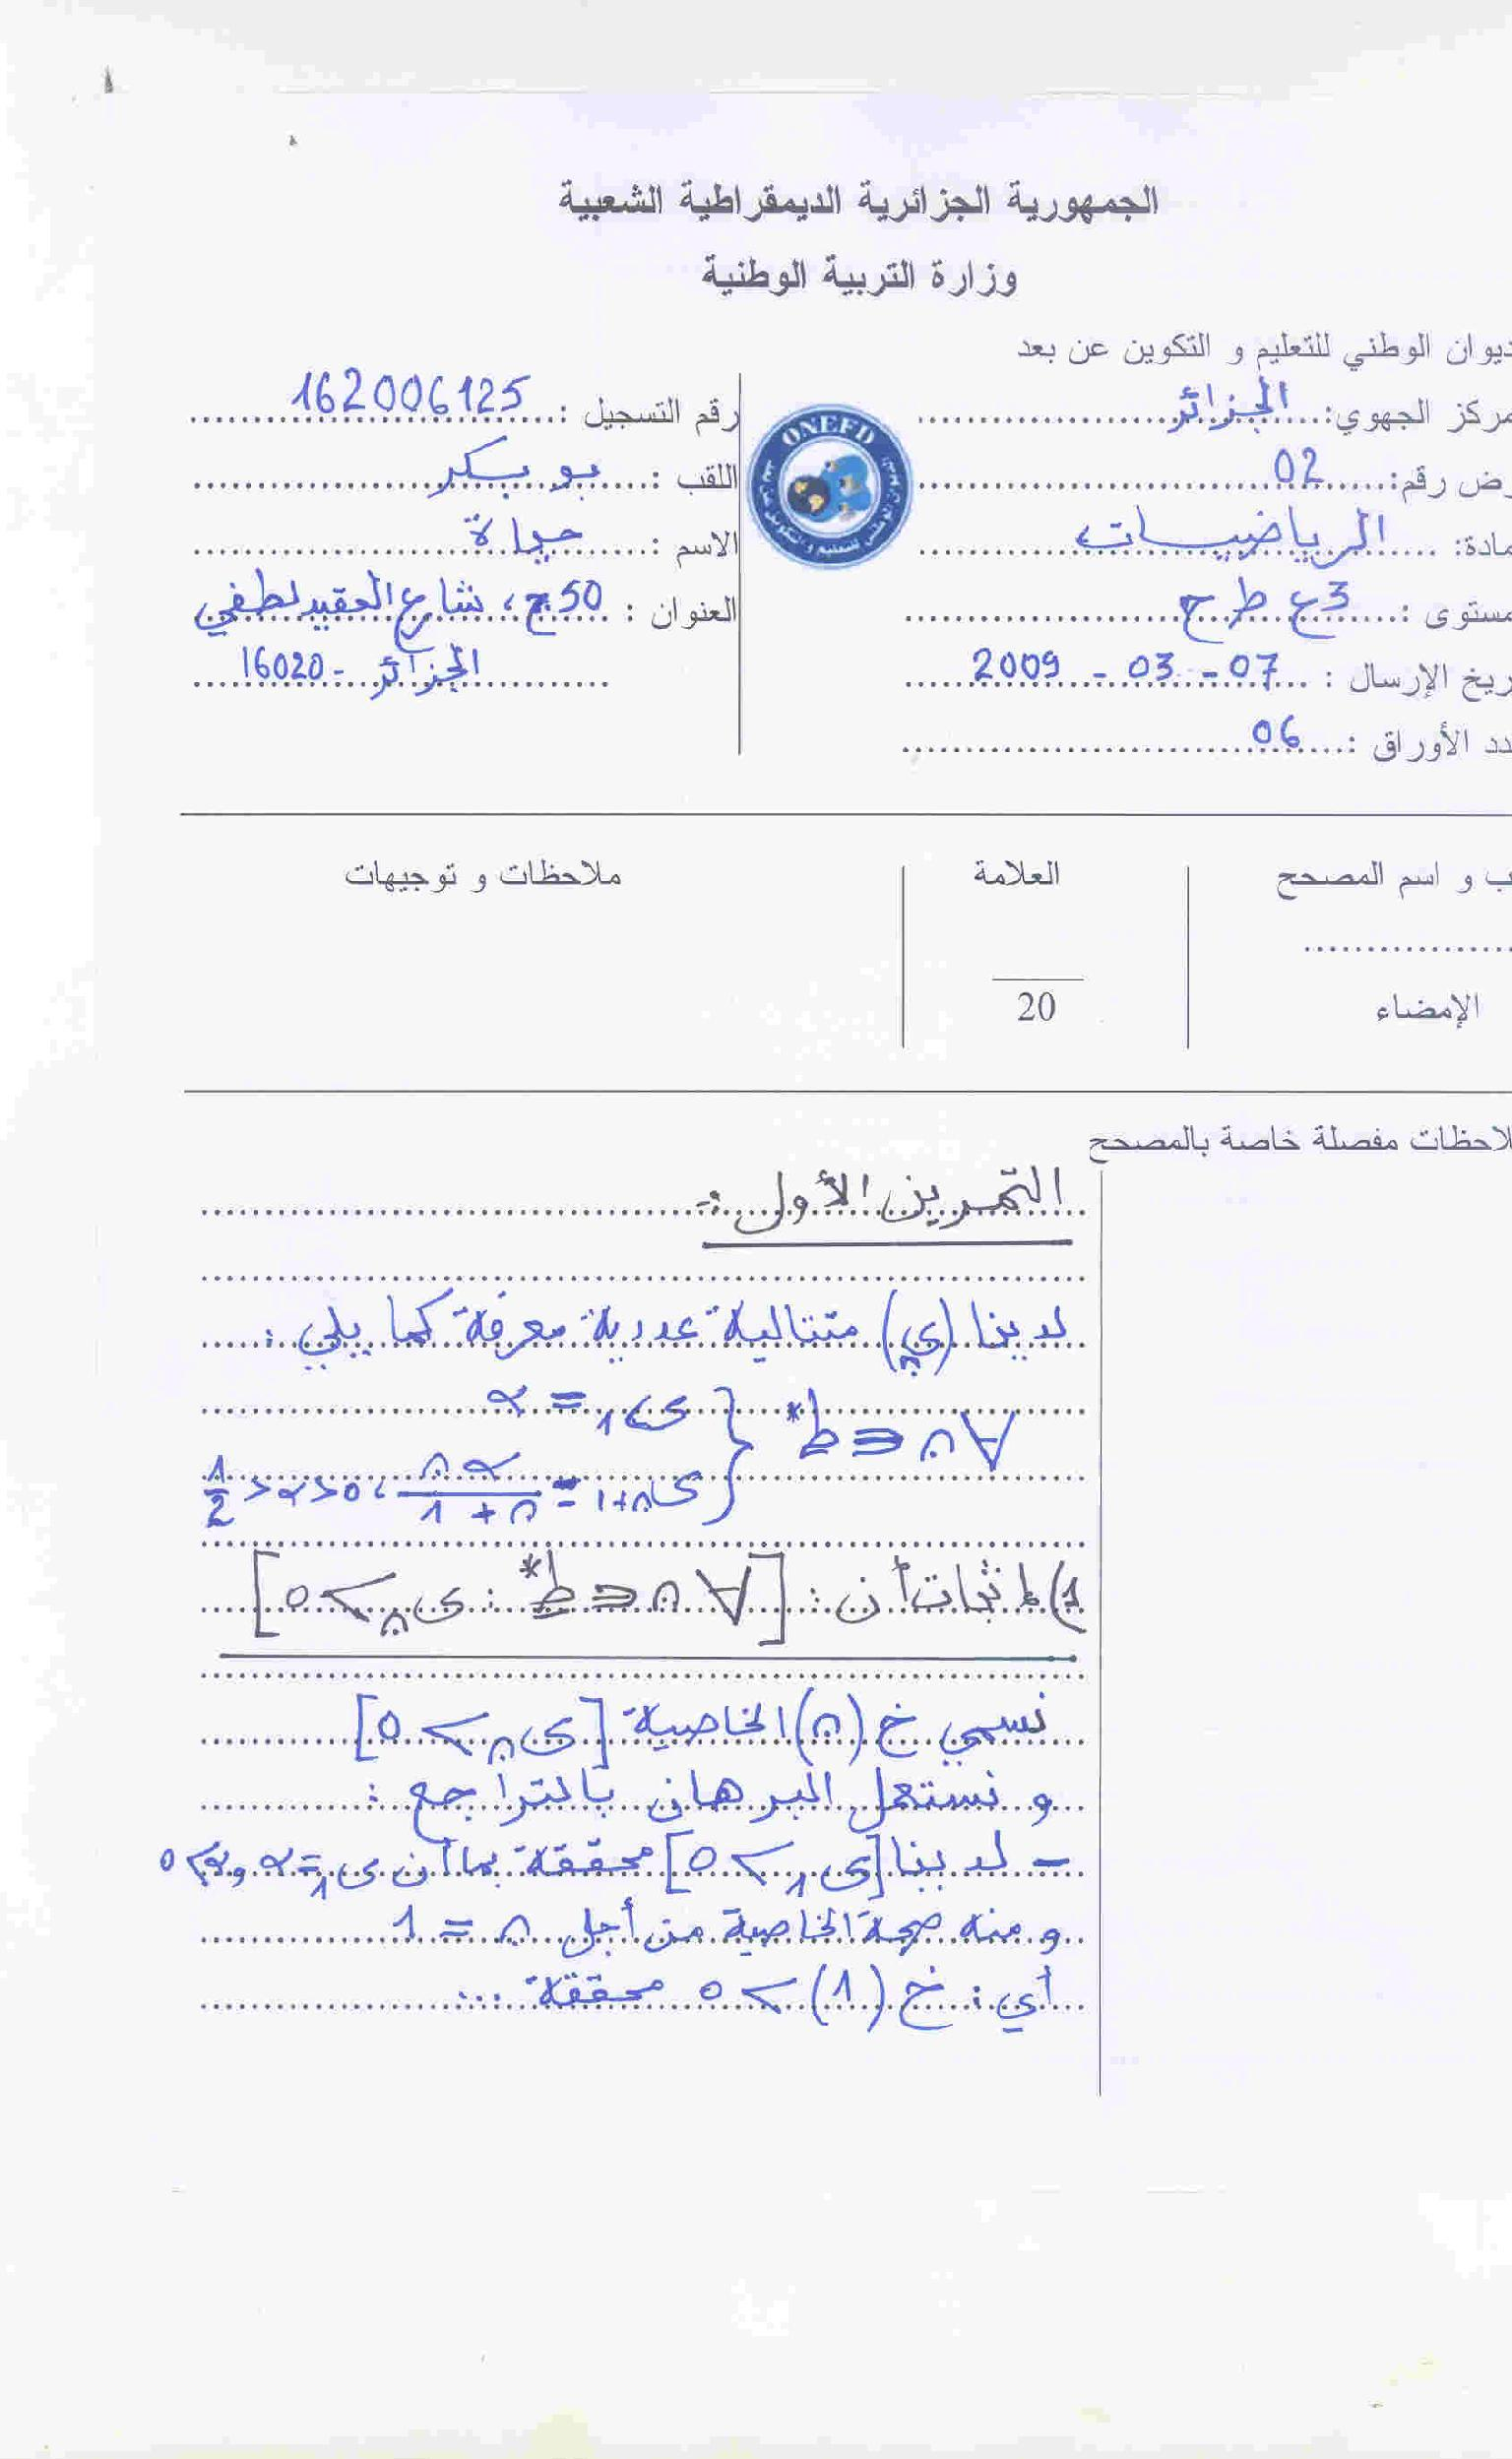 الجمهورية الجزائرية الديمقراطية الشعبية
وزارة التربية الوطنية
ديوان الوطني للتعليم و التكوين عن بعد
مركز الجهوي: الجزائر
رض رقم: 02
مادة: الرياضيات
مستوى : 3 ع ط ح
ريخ الإرسال : 07 - 03 - 2009
دد الأوراق : 06
ONEFD
رقم التسجيل : 162006125
اللقب : بوبكر
الاسم : حياة
العنوان : 50ج، شارع العقيد لطفي
الجزائر - 16020
ب و اسم المصحح
الإمضاء
العلامة
20
ملاحظات و توجيهات
لاحظات مفصلة خاصة بالمصحح
التمرين الأول :-
لدينا (ي ن) متتالية عددية معرفة كما يلي :
∀ ن ∈ ط* { ى1 = α
ى ن+1 = ن α / ن + 1 ، 0 < α < 1/2
1) إثبات أن : [∀ ن ∈ ط* : ى ن > 0]
نسمي خ (ن) الخاصية [ى ن > 0]
و نستعمل البرهان بالتراجع :
- لدينا [ى1 > 0] محققة بما أن ى1 = α و α > 0
و منه صحة الخاصية من أجل ن = 1
أي : خ (1) > 0 محققة ...